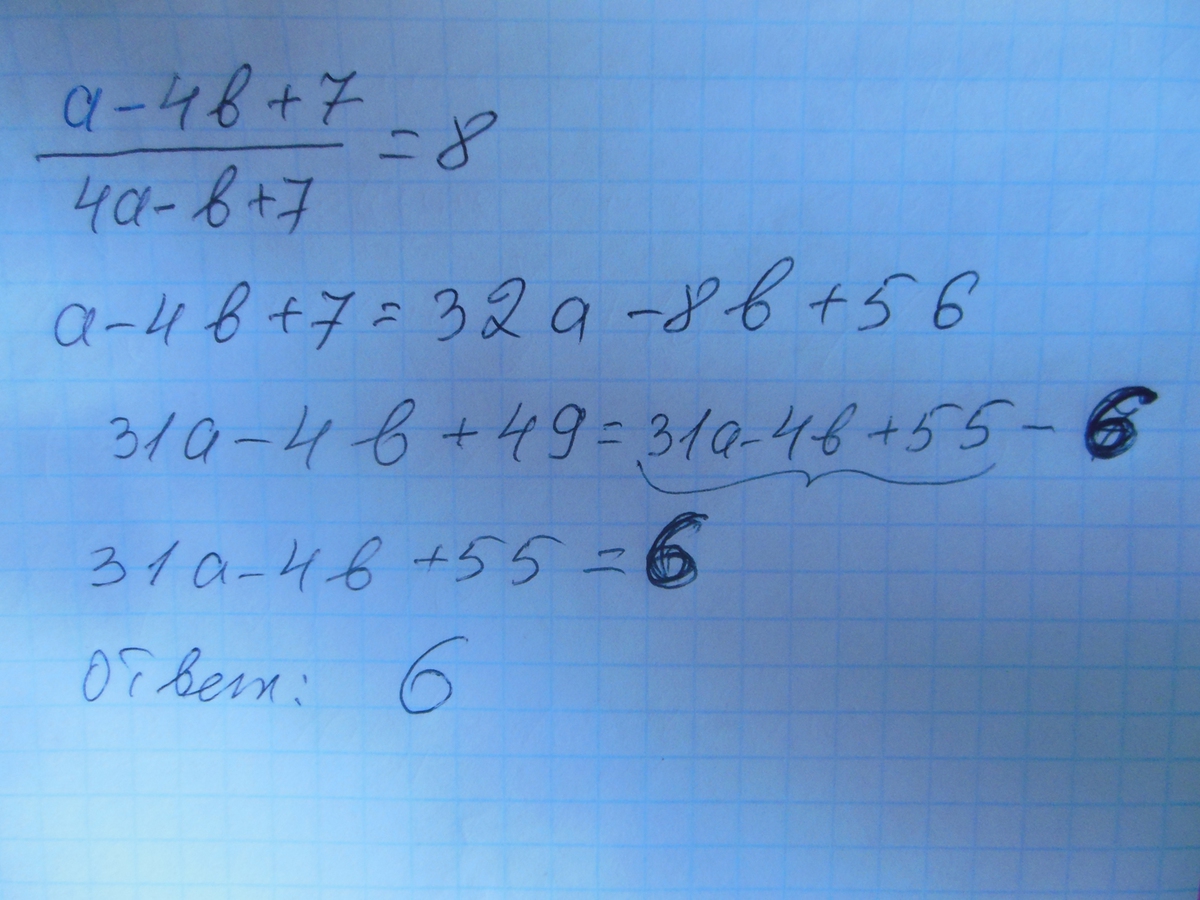 a-4b+7
4a-b+7
=8
a-4b+7=32a-8b+56
31a-4b+49=31a-4b+55-6
31a-4b+55=6
Ответ: 6